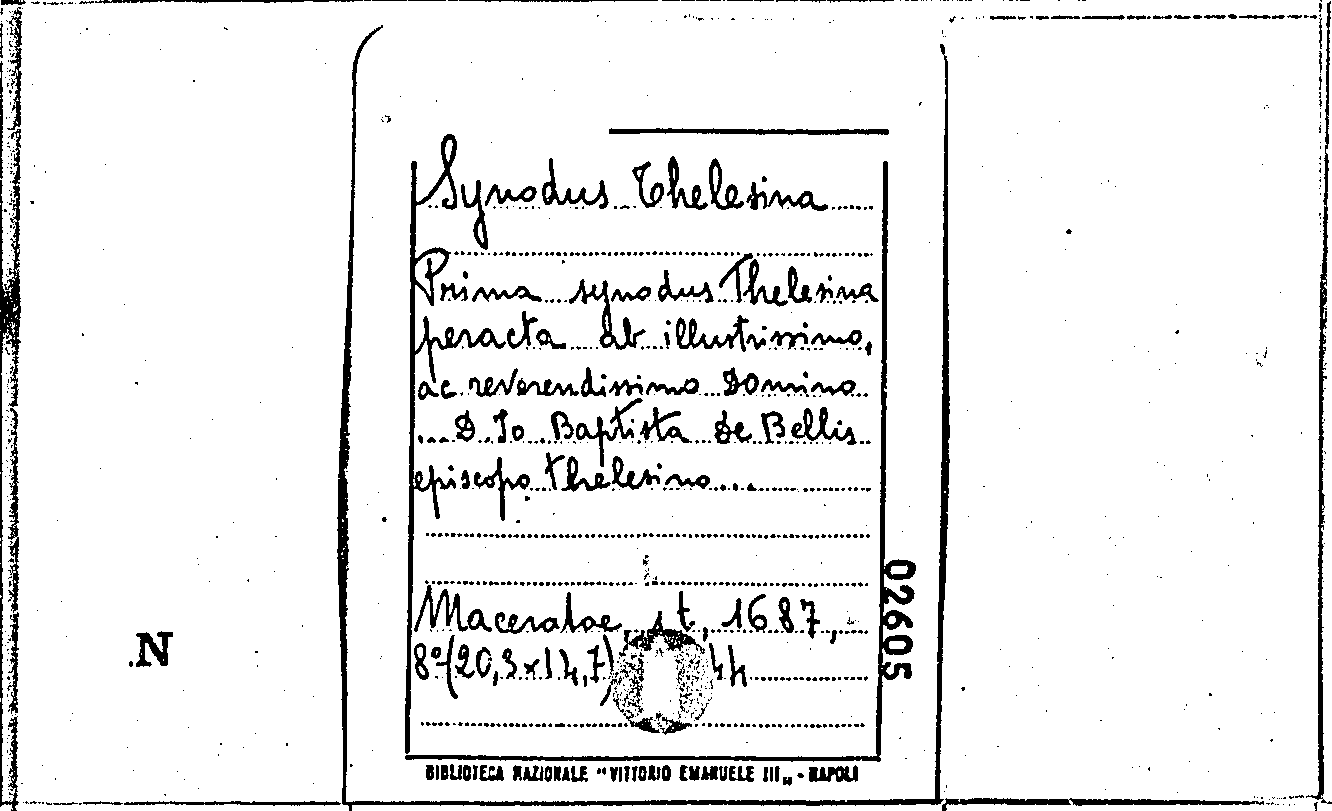 Synodus Thelesina
Prima synodus Thelesina
peracta ab illustrissimo,
ac reverendissimo Domino
... D. Io. Baptista De Bellis
episcopo thelesino...
Maceratae, s t, 1687,
8º (20,3x14,7) 44
02605
.N
BIBLIOTECA NAZIONALE "VITTORIO EMANUELE III„ - NAPOLI